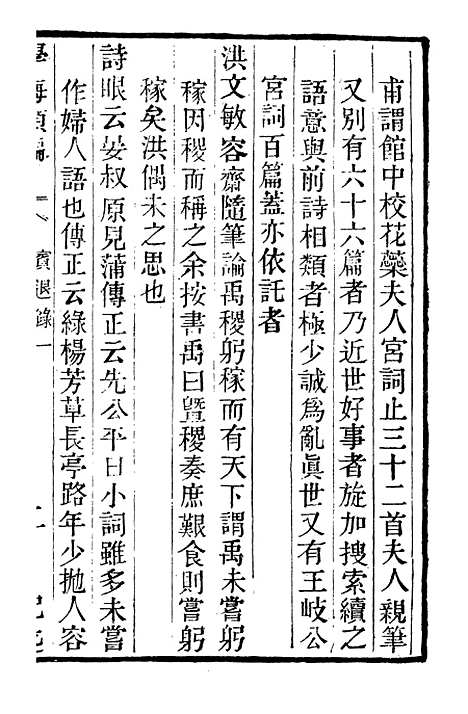 甫謂館中校花蘂夫人宮詞止三十二首夫人親筆
又別有六十六篇者乃近世好事者旋加搜索續之
語意與前詩相類者極少誠爲亂眞世又有王岐公
宮詞百篇蓋亦依託者
洪文敏容齋隨筆論禹稷躬稼而有天下謂禹未嘗躬
稼因稷而稱之余按書禹曰曁稷奏庶艱食則嘗躬
稼矣洪偶未之思也
詩眼云晏叔原見蒲傳正云先公平日小詞雖多未嘗
作婦人語也傳正云綠楊芳草長亭路年少拋人容
學海類編 賓退錄一